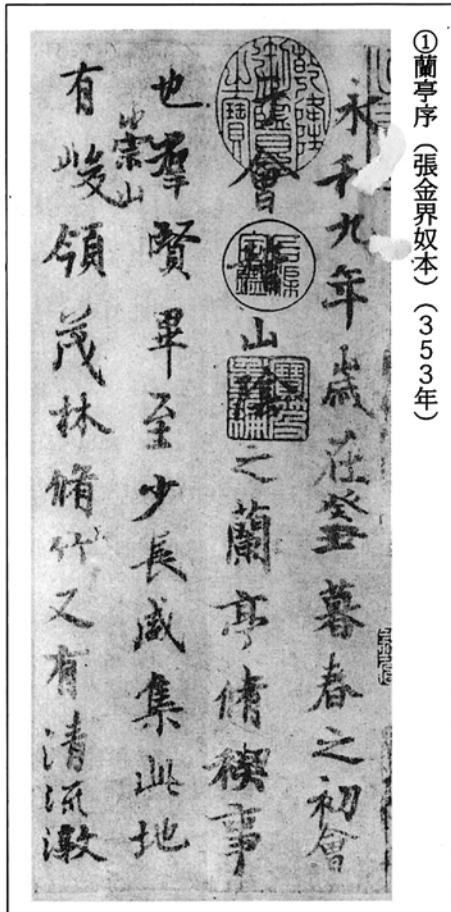 ①蘭亭序(張金界奴本)(353年)
永和九年歳在癸丑暮春之初會
于會稽山陰之蘭亭脩稧事
也羣賢畢至少長咸集此地
有崇山峻領茂林脩竹又有清流激
石渠定鑑
寶笈重編